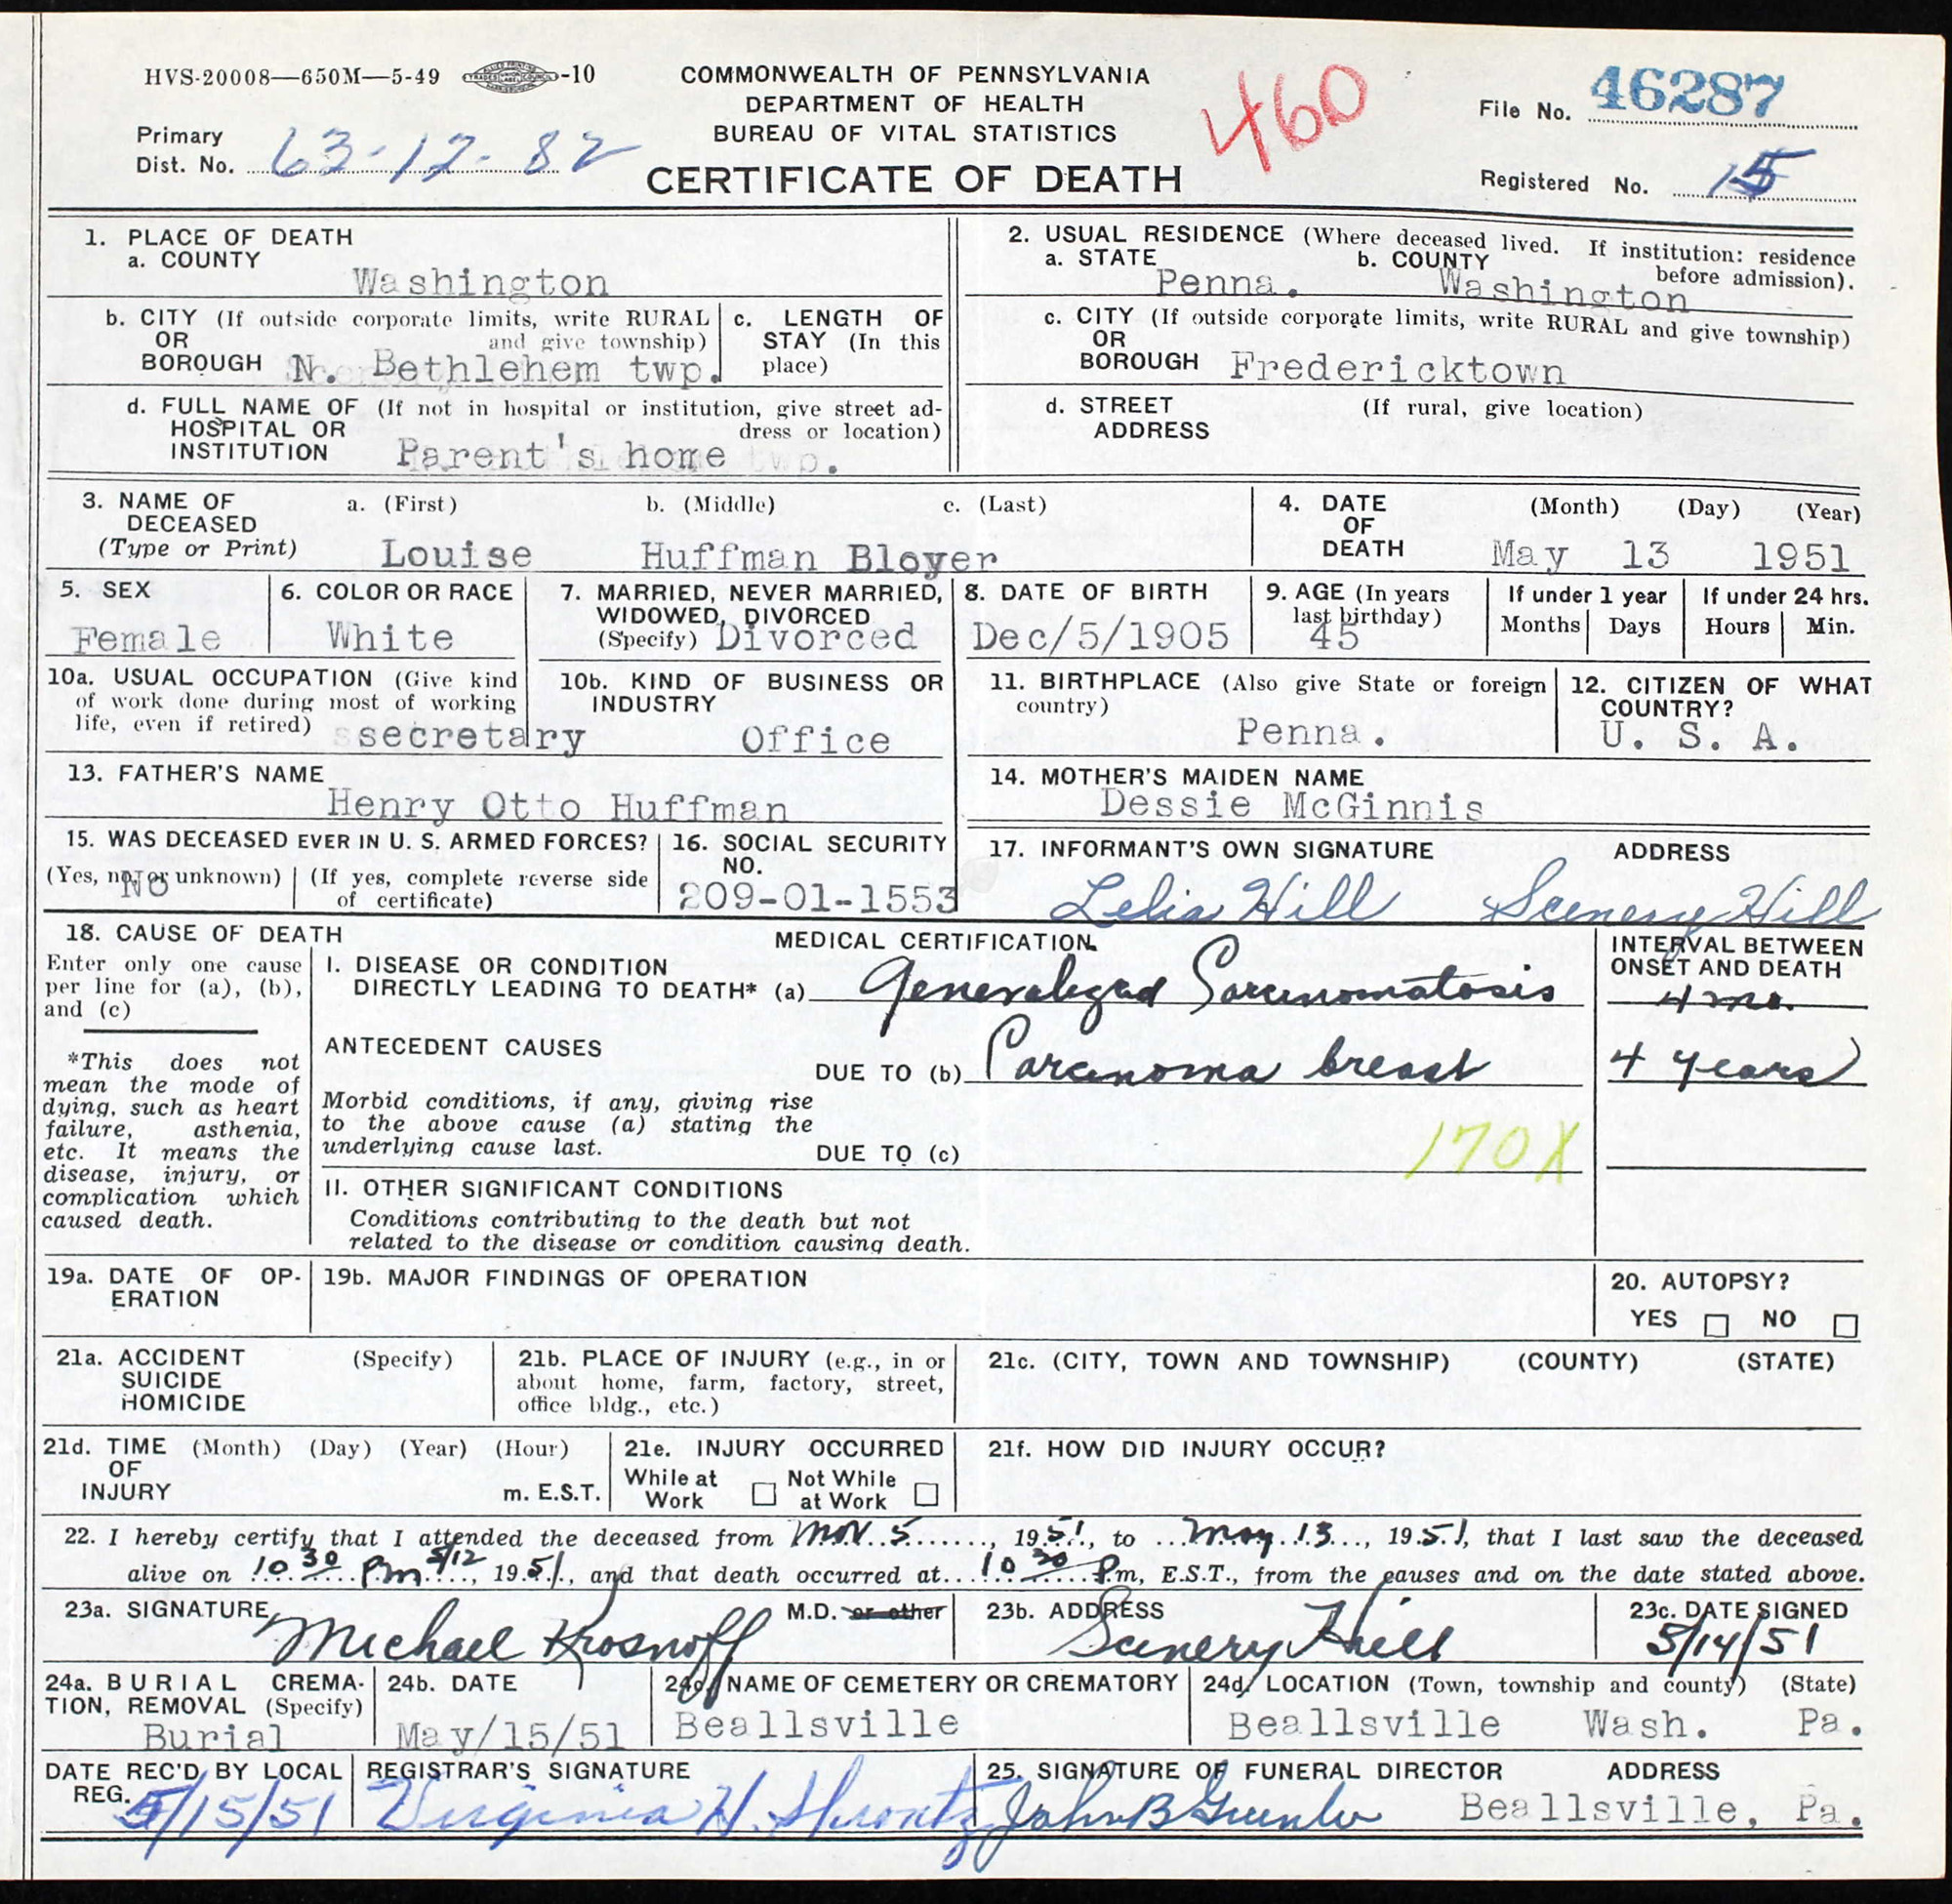 HVS-20008—650M—5-49 -10
COMMONWEALTH OF PENNSYLVANIA
DEPARTMENT OF HEALTH
BUREAU OF VITAL STATISTICS
CERTIFICATE OF DEATH
460
File No. 46287
Primary
Dist. No. 63-12-82
Registered No. 15
1. PLACE OF DEATH
a. COUNTY
Washington
b. CITY (If outside corporate limits, write RURAL
OR and give township)
BOROUGH N. Bethlehem twp.
c. LENGTH OF
STAY (In this
place)
d. FULL NAME OF (If not in hospital or institution, give street ad-
HOSPITAL OR dress or location)
INSTITUTION Parent's home
2. USUAL RESIDENCE (Where deceased lived. If institution: residence
before admission).
a. STATE b. COUNTY
Penna. Washington
c. CITY (If outside corporate limits, write RURAL and give township)
OR
BOROUGH Fredericktown
d. STREET (If rural, give location)
ADDRESS
3. NAME OF a. (First) b. (Middle) c. (Last)
DECEASED
(Type or Print) Louise Huffman Bloyer
4. DATE (Month) (Day) (Year)
OF
DEATH May 13 1951
5. SEX
Female
6. COLOR OR RACE
White
7. MARRIED, NEVER MARRIED,
WIDOWED, DIVORCED
(Specify) Divorced
8. DATE OF BIRTH
Dec/5/1905
9. AGE (In years
last birthday)
45
If under 1 year
Months Days
If under 24 hrs.
Hours Min.
10a. USUAL OCCUPATION (Give kind
of work done during most of working
life, even if retired) secretary
10b. KIND OF BUSINESS OR
INDUSTRY
Office
11. BIRTHPLACE (Also give State or foreign
country)
Penna.
12. CITIZEN OF WHAT
COUNTRY?
U. S. A.
13. FATHER'S NAME
Henry Otto Huffman
14. MOTHER'S MAIDEN NAME
Dessie McGinnis
15. WAS DECEASED EVER IN U. S. ARMED FORCES?
(Yes, no, or unknown) (If yes, complete reverse side
of certificate)
No
16. SOCIAL SECURITY
NO.
209-01-1553
17. INFORMANT'S OWN SIGNATURE ADDRESS
Lelia Hill Scenery Hill
18. CAUSE OF DEATH
Enter only one cause
per line for (a), (b),
and (c)
*This does not
mean the mode of
dying, such as heart
failure, asthenia,
etc. It means the
disease, injury, or
complication which
caused death.
MEDICAL CERTIFICATION
I. DISEASE OR CONDITION
DIRECTLY LEADING TO DEATH* (a) Generalized Carcinomatosis
ANTECEDENT CAUSES
DUE TO (b) Carcinoma breast
Morbid conditions, if any, giving rise
to the above cause (a) stating the
underlying cause last.
DUE TO (c)
170X
INTERVAL BETWEEN
ONSET AND DEATH
4 mo.
4 years
II. OTHER SIGNIFICANT CONDITIONS
Conditions contributing to the death but not
related to the disease or condition causing death.
19a. DATE OF OP-
ERATION
19b. MAJOR FINDINGS OF OPERATION
20. AUTOPSY?
YES NO
21a. ACCIDENT (Specify)
SUICIDE
HOMICIDE
21b. PLACE OF INJURY (e.g., in or
about home, farm, factory, street,
office bldg., etc.)
21c. (CITY, TOWN AND TOWNSHIP) (COUNTY) (STATE)
21d. TIME (Month) (Day) (Year) (Hour)
OF
INJURY m. E.S.T.
21e. INJURY OCCURRED
While at Not While
Work at Work
21f. HOW DID INJURY OCCUR?
22. I hereby certify that I attended the deceased from 5, 1951, to May 13, 1951, that I last saw the deceased
alive on 10 30 Pm 5/12, 1951, and that death occurred at 10 30 Pm, E.S.T., from the causes and on the date stated above.
23a. SIGNATURE M.D. or other
Michael Krosnoff
23b. ADDRESS
Scenery Hill
23c. DATE SIGNED
5/14/51
24a. BURIAL CREMA-
TION, REMOVAL (Specify)
Burial
24b. DATE
May/15/51
24c. NAME OF CEMETERY OR CREMATORY
Beallsville
24d. LOCATION (Town, township and county) (State)
Beallsville Wash. Pa.
DATE REC'D BY LOCAL
REG. 5/15/51
REGISTRAR'S SIGNATURE
Virginia H. Shrontz
25. SIGNATURE OF FUNERAL DIRECTOR ADDRESS
John B Greenlee Beallsville, Pa.